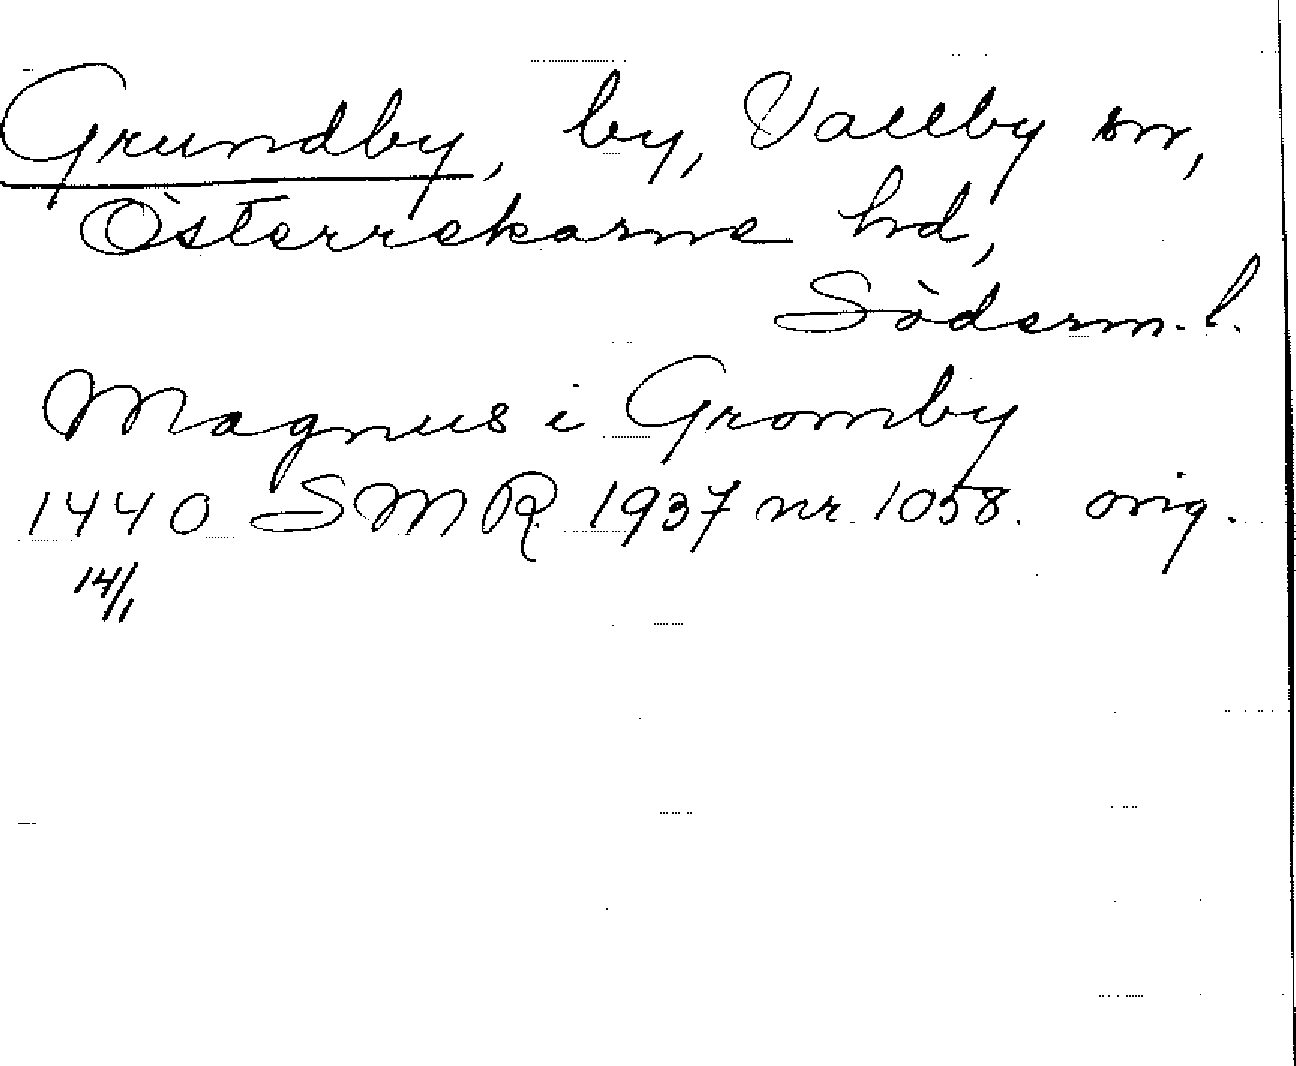 Grundby, by, Vallby sn,
Österrekarne hd,
Söderm. l.
Magnus i Gromby
1440 SMR 1937 nr 1058. orig.
14/1